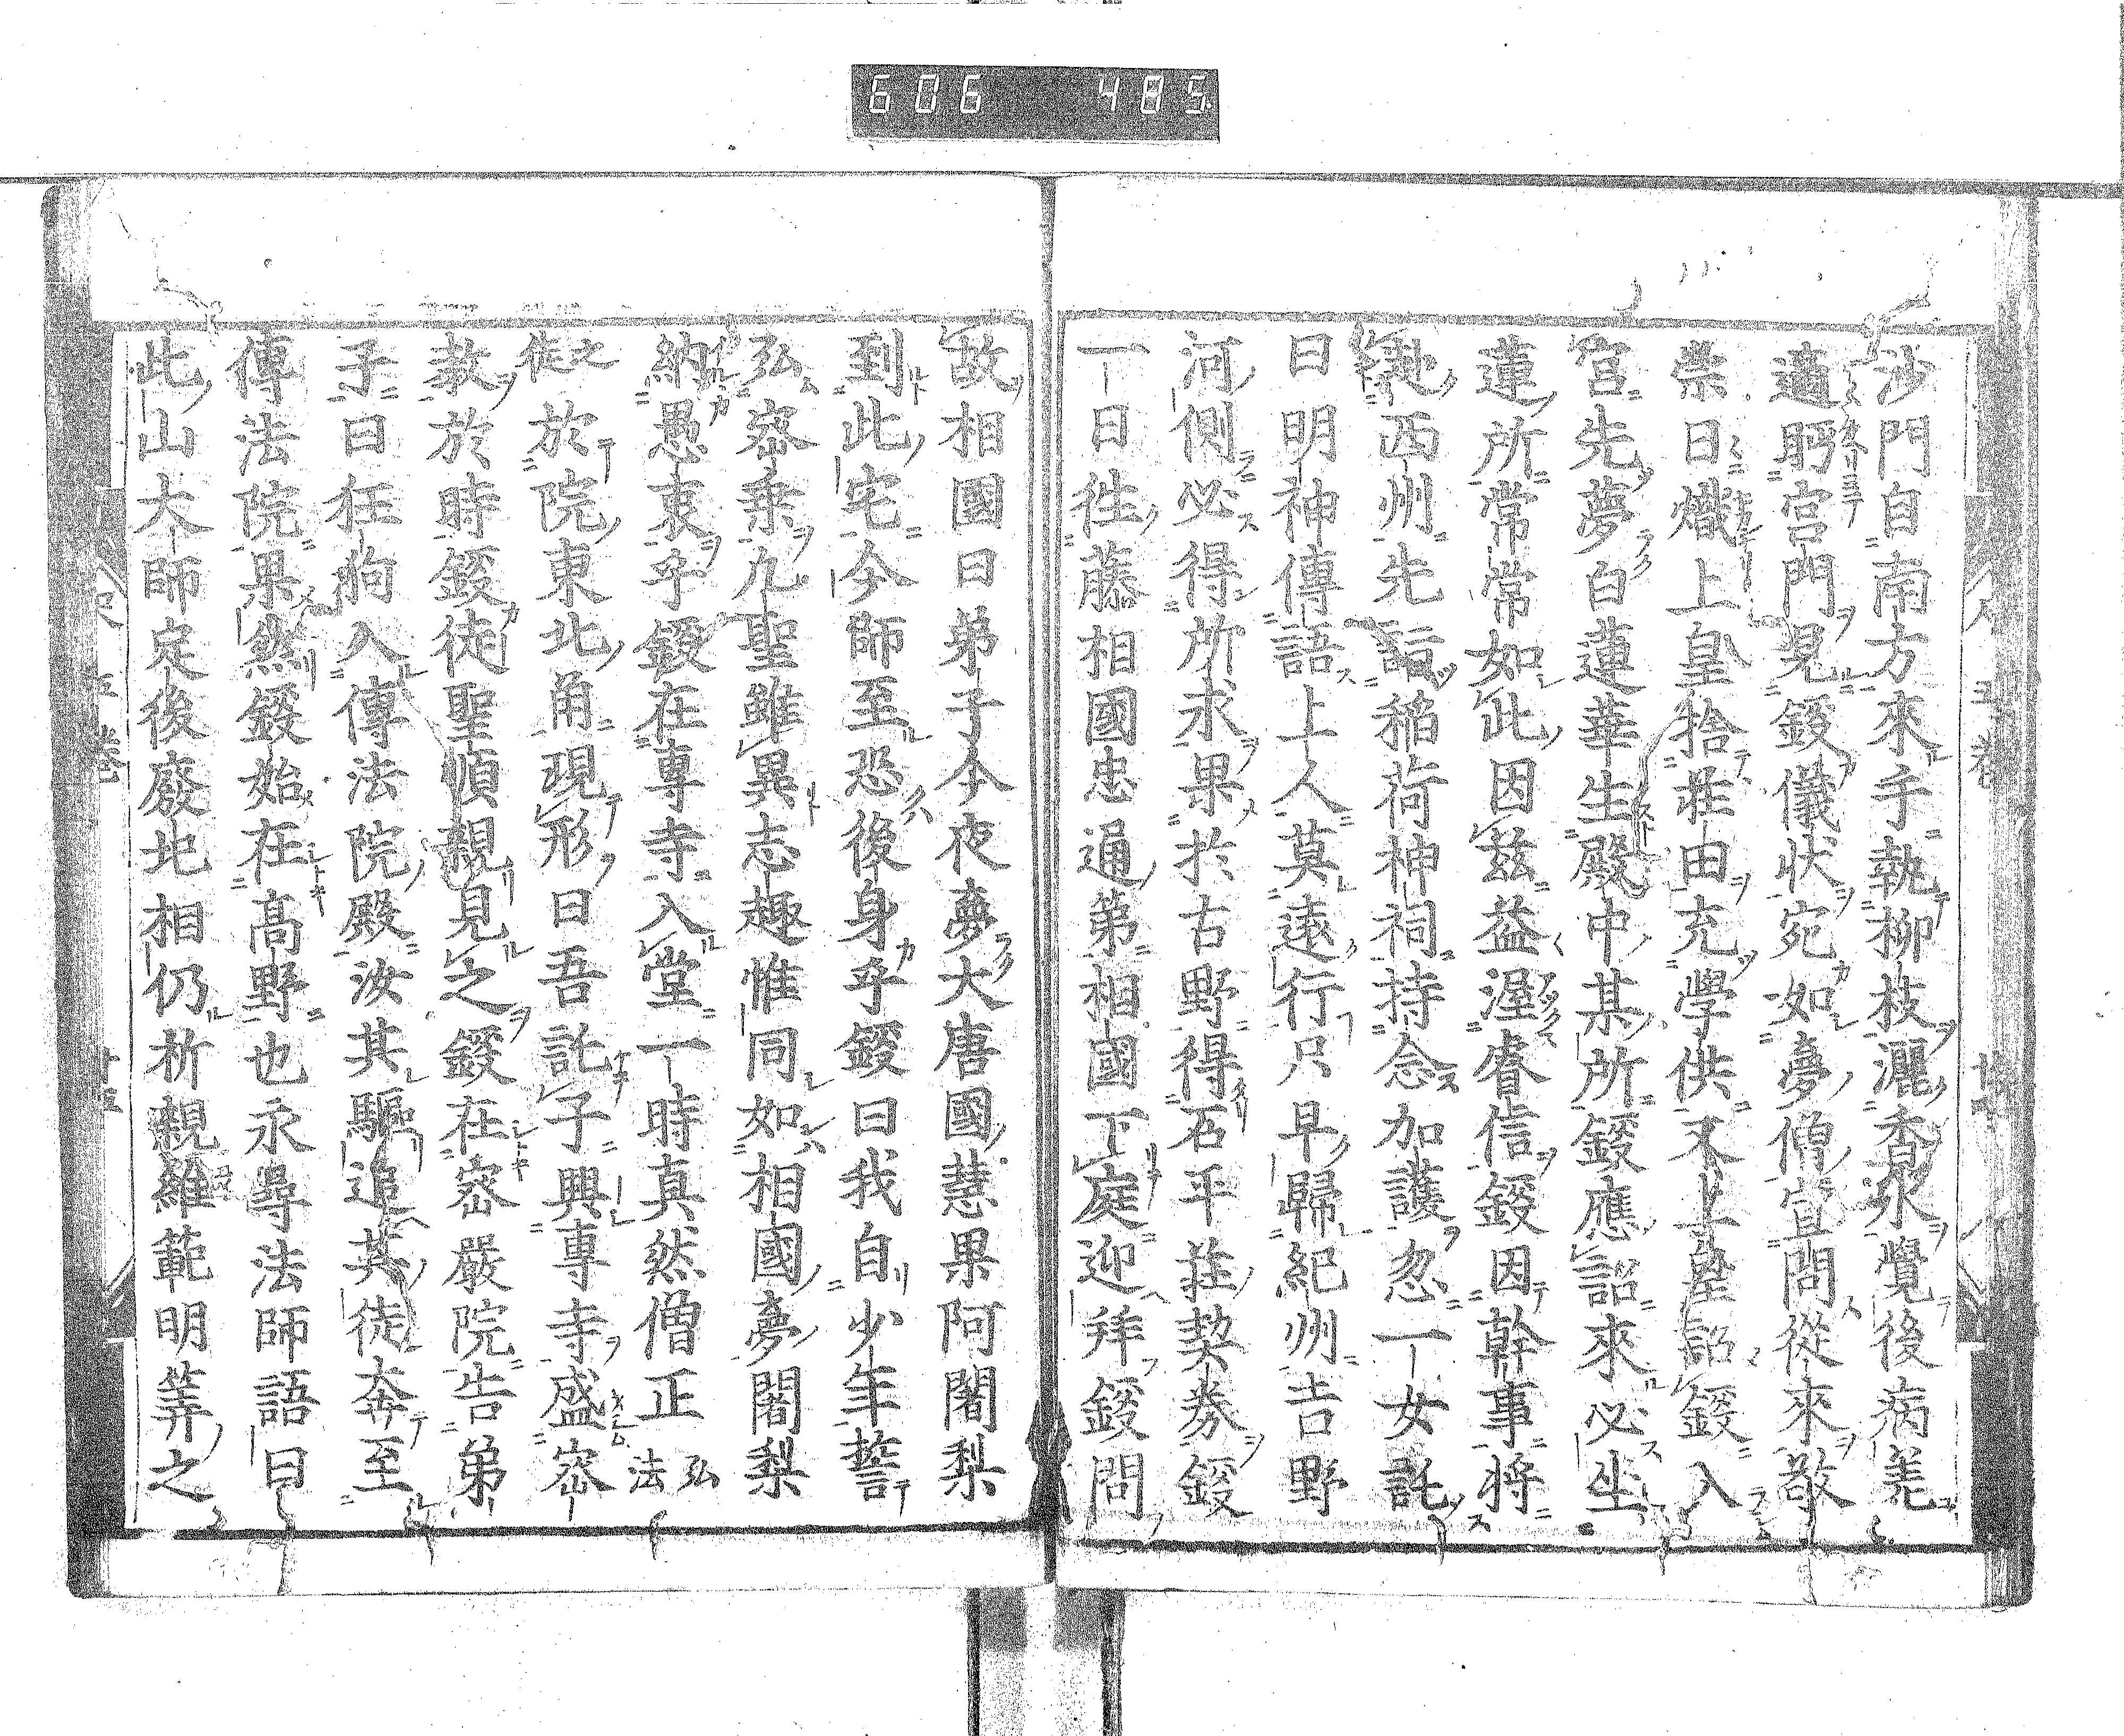 606 485
沙門自南方來手執柳枝灑香水覺後病差
適眄宮門見鑁儀狀宛如夢僧宣問從來敬
崇日熾上皇捨莊田充學供又上皇詔鑁入
宮先夢白蓮華生殿中其所鑁應詔來必坐
蓮所常常如此因茲益渥睿信鑁因幹事將
赴西州先詣稲荷神祠持念加護忽一女託
曰明神傳語上人莫遠行只早歸紀州吉野
河側必得所求果於古野得石平莊契券鑁
一日徃藤相國忠通第相國下庭迎拜鑁問
故相國曰弟子今夜夢大唐國慧果阿闍梨
到此宅今師至恐後身乎鑁曰我自少年誓
弘密乘九聖雖異志趣惟同如相國夢闍梨
納愚衷乎鑁在專寺入堂一時真然僧正弘法
之徒於院東北角現形曰吾託子興專寺盛密
教於時鑁徒聖順親見之鑁在密嚴院告弟
子曰狂狗入傳法院殿汝其驅追其徒奔至
傳法院果然鑁始在高野也永尋法師語曰
此山大師定後廢地相仍祈親維範明筭之